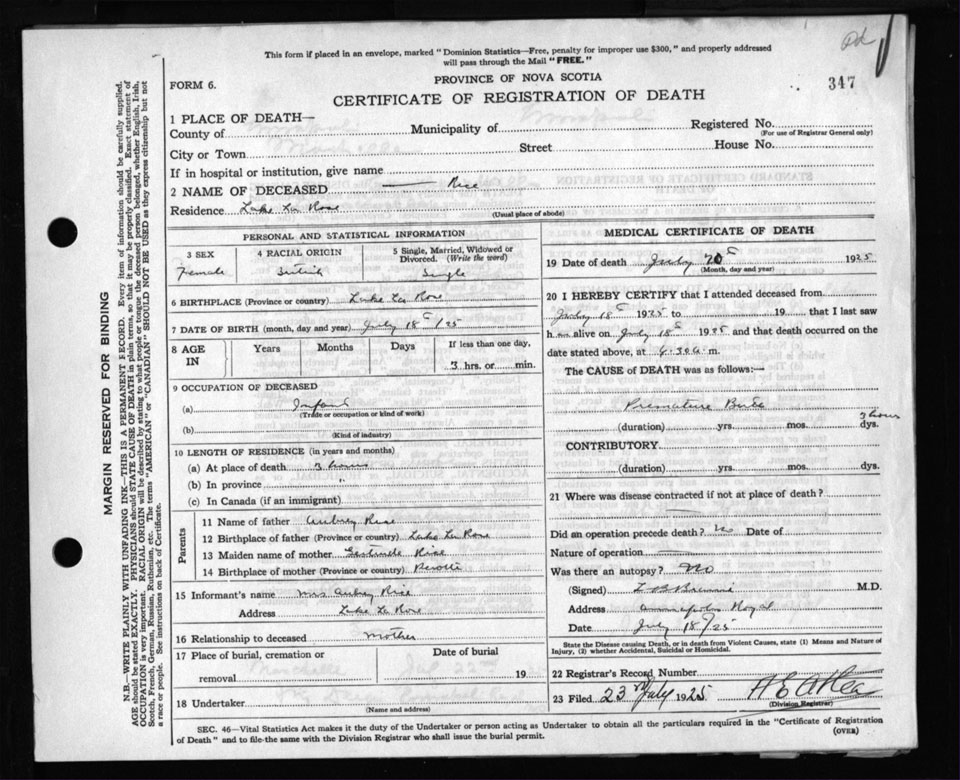 Pd
This form if placed in an envelope, marked "Dominion Statistics—Free, penalty for improper use $300," and properly addressed
will pass through the Mail "FREE."
PROVINCE OF NOVA SCOTIA
FORM 6.
347
CERTIFICATE OF REGISTRATION OF DEATH
1 PLACE OF DEATH—
County of Municipality of Registered No.
(For use of Registrar General only)
City or Town Street House No.
If in hospital or institution, give name
2 NAME OF DECEASED — Rice
Residence Lake La Rose
(Usual place of abode)
PERSONAL AND STATISTICAL INFORMATION
3 SEX 4 RACIAL ORIGIN 5 Single, Married, Widowed or Divorced. (Write the word)
Female British Single
6 BIRTHPLACE (Province or country) Lake La Rose
7 DATE OF BIRTH (month, day and year) July 18th/25
8 AGE IN Years Months Days If less than one day,
3 hrs. or min.
9 OCCUPATION OF DECEASED
(a) Infant
(Trade or occupation or kind of work)
(b)
(Kind of industry)
10 LENGTH OF RESIDENCE (in years and months)
(a) At place of death 3 hours
(b) In province "
(c) In Canada (if an immigrant)
Parents
11 Name of father Aubrey Rice
12 Birthplace of father (Province or country) Lake La Rose
13 Maiden name of mother Gertrude Rice
14 Birthplace of mother (Province or country)
15 Informant's name Mrs Aubrey Rice
Address Lake La Rose
16 Relationship to deceased Mother
17 Place of burial, cremation or Date of burial
removal 19
18 Undertaker
(Name and address)
MEDICAL CERTIFICATE OF DEATH
19 Date of death 1925
(Month, day and year)
20 I HEREBY CERTIFY that I attended deceased from
18th 1925 to 19 that I last saw
h alive on July 18th 1925 and that death occurred on
date stated above, at m.
The CAUSE of DEATH was as follows:—
Premature Birth
(duration) yrs. mos. dys. 3 hours
CONTRIBUTORY
(duration) yrs. mos. dys.
21 Where was disease contracted if not at place of death?
—
Did an operation precede death? No Date of
Nature of operation —
Was there an autopsy? No
(Signed) M.D.
Address Annapolis Royal
Date July 18th/25
State the Disease causing Death, or in death from Violent Causes, state (1) Means and Nature of
Injury, (2) whether Accidental, Suicidal or Homicidal.
22 Registrar's Record Number
23 Filed 23rd July 1925
(Division Registrar)
SEC. 46—Vital Statistics Act makes it the duty of the Undertaker or person acting as Undertaker to obtain all the particulars required in the "Certificate of Registration
of Death" and to file the same with the Division Registrar who shall issue the burial permit.
(OVER)
MARGIN RESERVED FOR BINDING
N.B.—WRITE PLAINLY WITH UNFADING INK—THIS IS A PERMANENT RECORD. Every item of information should be carefully supplied.
AGE should be stated EXACTLY. PHYSICIANS should STATE CAUSE OF DEATH in plain terms, so that it may be properly classified. Exact statement of
OCCUPATION is very important. RACIAL ORIGIN will be described by stating to what people or tongue the deceased person belonged, whether English, Irish,
Scotch, French, German, Russian, Ruthenian, etc. The terms "AMERICAN" or "CANADIAN" SHOULD NOT BE USED as they express citizenship but not
a race or people. See instructions on back of Certificate.